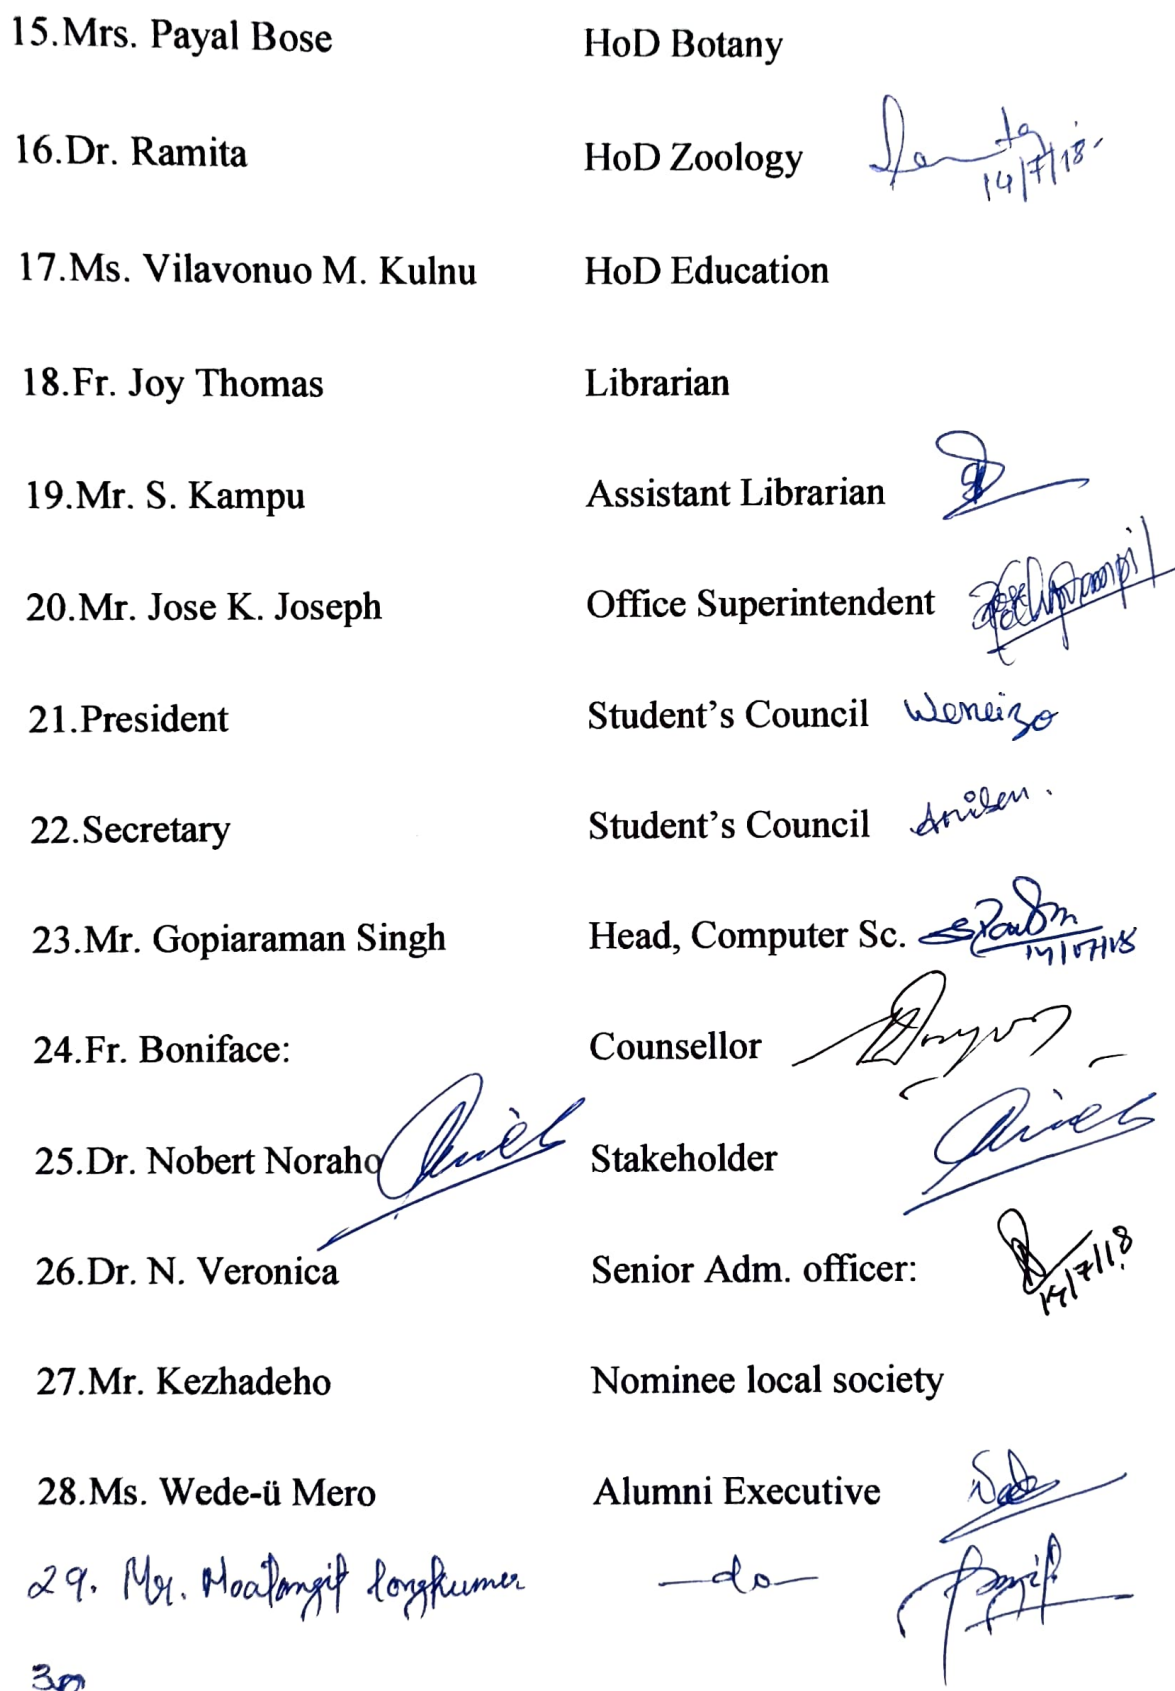 15.Mrs. Payal Bose HoD Botany
16.Dr. Ramita HoD Zoology
14/7/18
17.Ms. Vilavonuo M. Kulnu HoD Education
18.Fr. Joy Thomas Librarian
19.Mr. S. Kampu Assistant Librarian
20.Mr. Jose K. Joseph Office Superintendent
21.President Student's Council Weneizo
22.Secretary Student's Council
23.Mr. Gopiaraman Singh Head, Computer Sc.
14/07/18
24.Fr. Boniface: Counsellor
25.Dr. Nobert Noraho Stakeholder
26.Dr. N. Veronica Senior Adm. officer:
14/7/18
27.Mr. Kezhadeho Nominee local society
28.Ms. Wede-ü Mero Alumni Executive
29. Mr. longkumer —do—
30